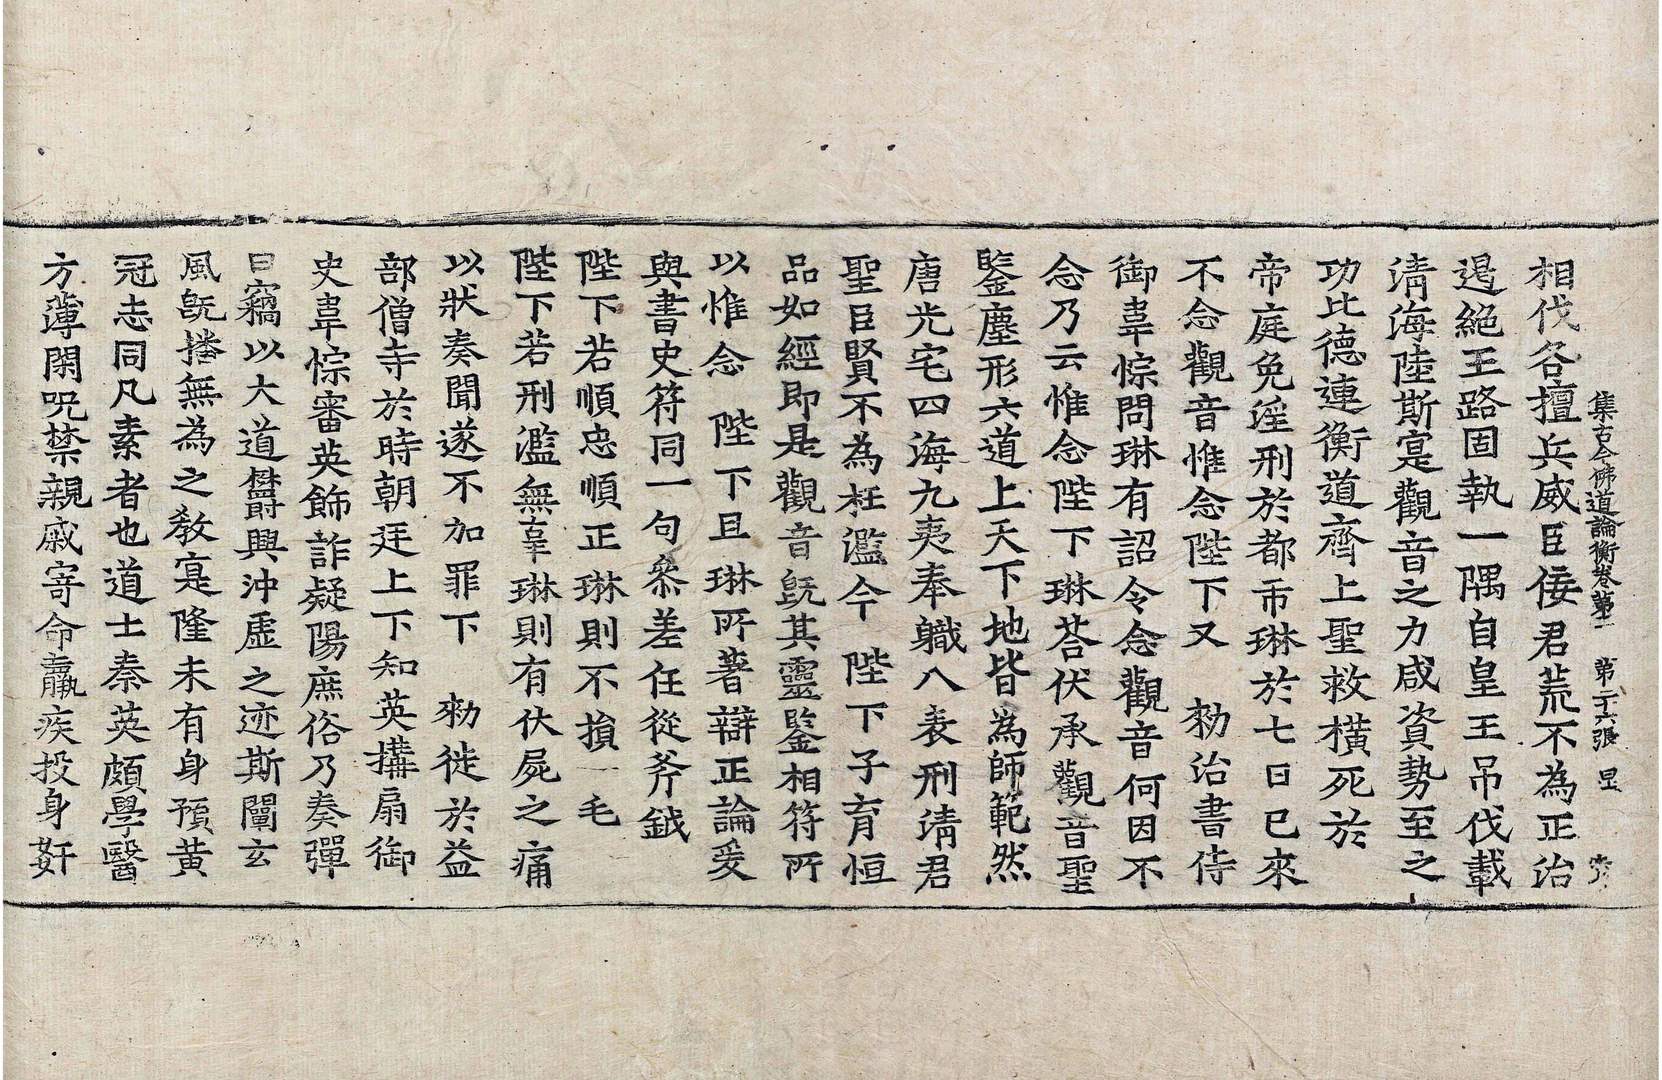 集古今佛道論衡卷第二 第二十六張 㞐
相伐各擅兵威臣佞君荒不為正治
遏絕王路固執一隅自皇王吊伐載
清海陸斯寔觀音之力咸資勢至之
功比德連衡道齊上聖救橫死於
帝庭免淫刑於都市琳於七日已來
不念觀音惟念陛下又 勑治書侍
御韋悰問琳有詔令念觀音何因不
念乃云惟念陛下琳荅伏承觀音聖
鑒塵形六道上天下地皆為師範然
唐光宅四海九夷奉職八表刑清君
聖臣賢不為枉濫今 陛下子育恒
品如經即是觀音旣其靈鑒相符所
以惟念 陛下且琳所著辯正論爰
與書史符同一句叅差任從斧鉞
陛下若順忠順正琳則不損一毛
陛下若刑濫無辜琳則有伏屍之痛
以狀奏聞遂不加罪下 勑徙於益
部僧寺於時朝廷上下知英搆扇御
史韋悰審英飾詐疑陽庶俗乃奏彈
曰竊以大道鬱興沖虛之迹斯闡玄
風旣播無為之教寔隆未有身預黃
冠志同凡素者也道士秦英頗學醫
方薄閑呪禁親戚寄命羸疾投身姧